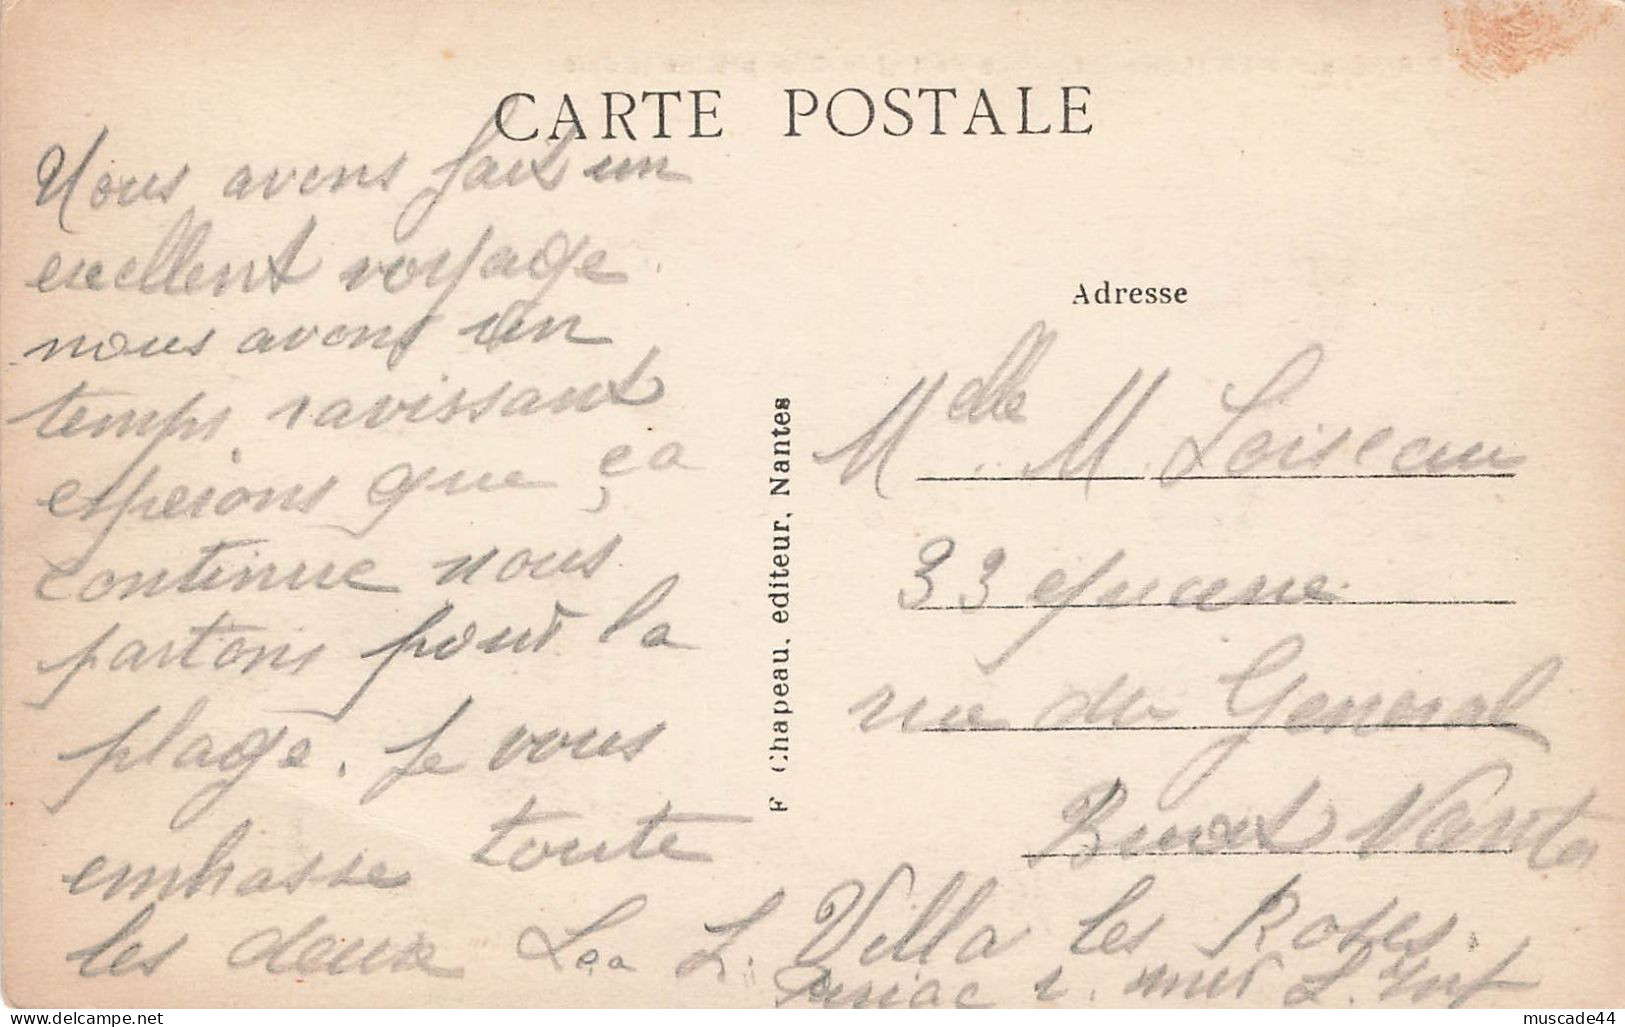 CARTE POSTALE
Nous avons fait un
excellent voyage
nous avons un
temps ravissant
esperons que ça
continue nous
partons pour la
plage. Je vous
embrasse toute
les deux Léa L.
F Chapeau. editeur, Nantes
Adresse
Mdlle M. Loiseau
33
rue du General
Buat Nantes
Villa les Roses.
s. mer L. Inf
muscade44